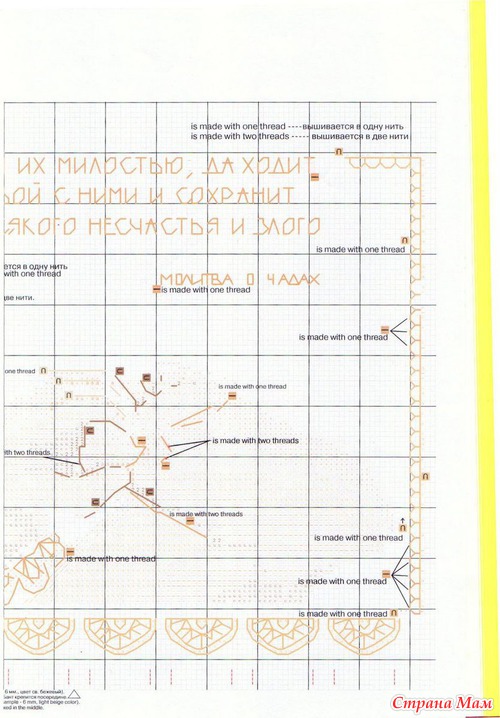 is made with one thread ----вышивается в одну нить
is made with two threads ----- вышивается в две нити
ИХ МИЛОСТЬЮ, ДА ХОДИТ
ОЙ С НИМИ И СОХРАНИТ
ЯКОГО НЕСЧАСТЬЯ И ЗЛОГО
is made with one thread
ется в одну нить
with one thread
МОЛИТВА О ЧАДАХ
is made with one thread
две нити.
is made with one thread
one thread
is made with one thread
is made with two threads
with two threads
is made with two threads
is made with one thread
is made with one thread
is made with one thread
is made with one thread
6 мм., цвет св. бежевый).
бант крепится посередине.
ample - 6 mm, light beige color).
wed in the middle.
Страна Мам